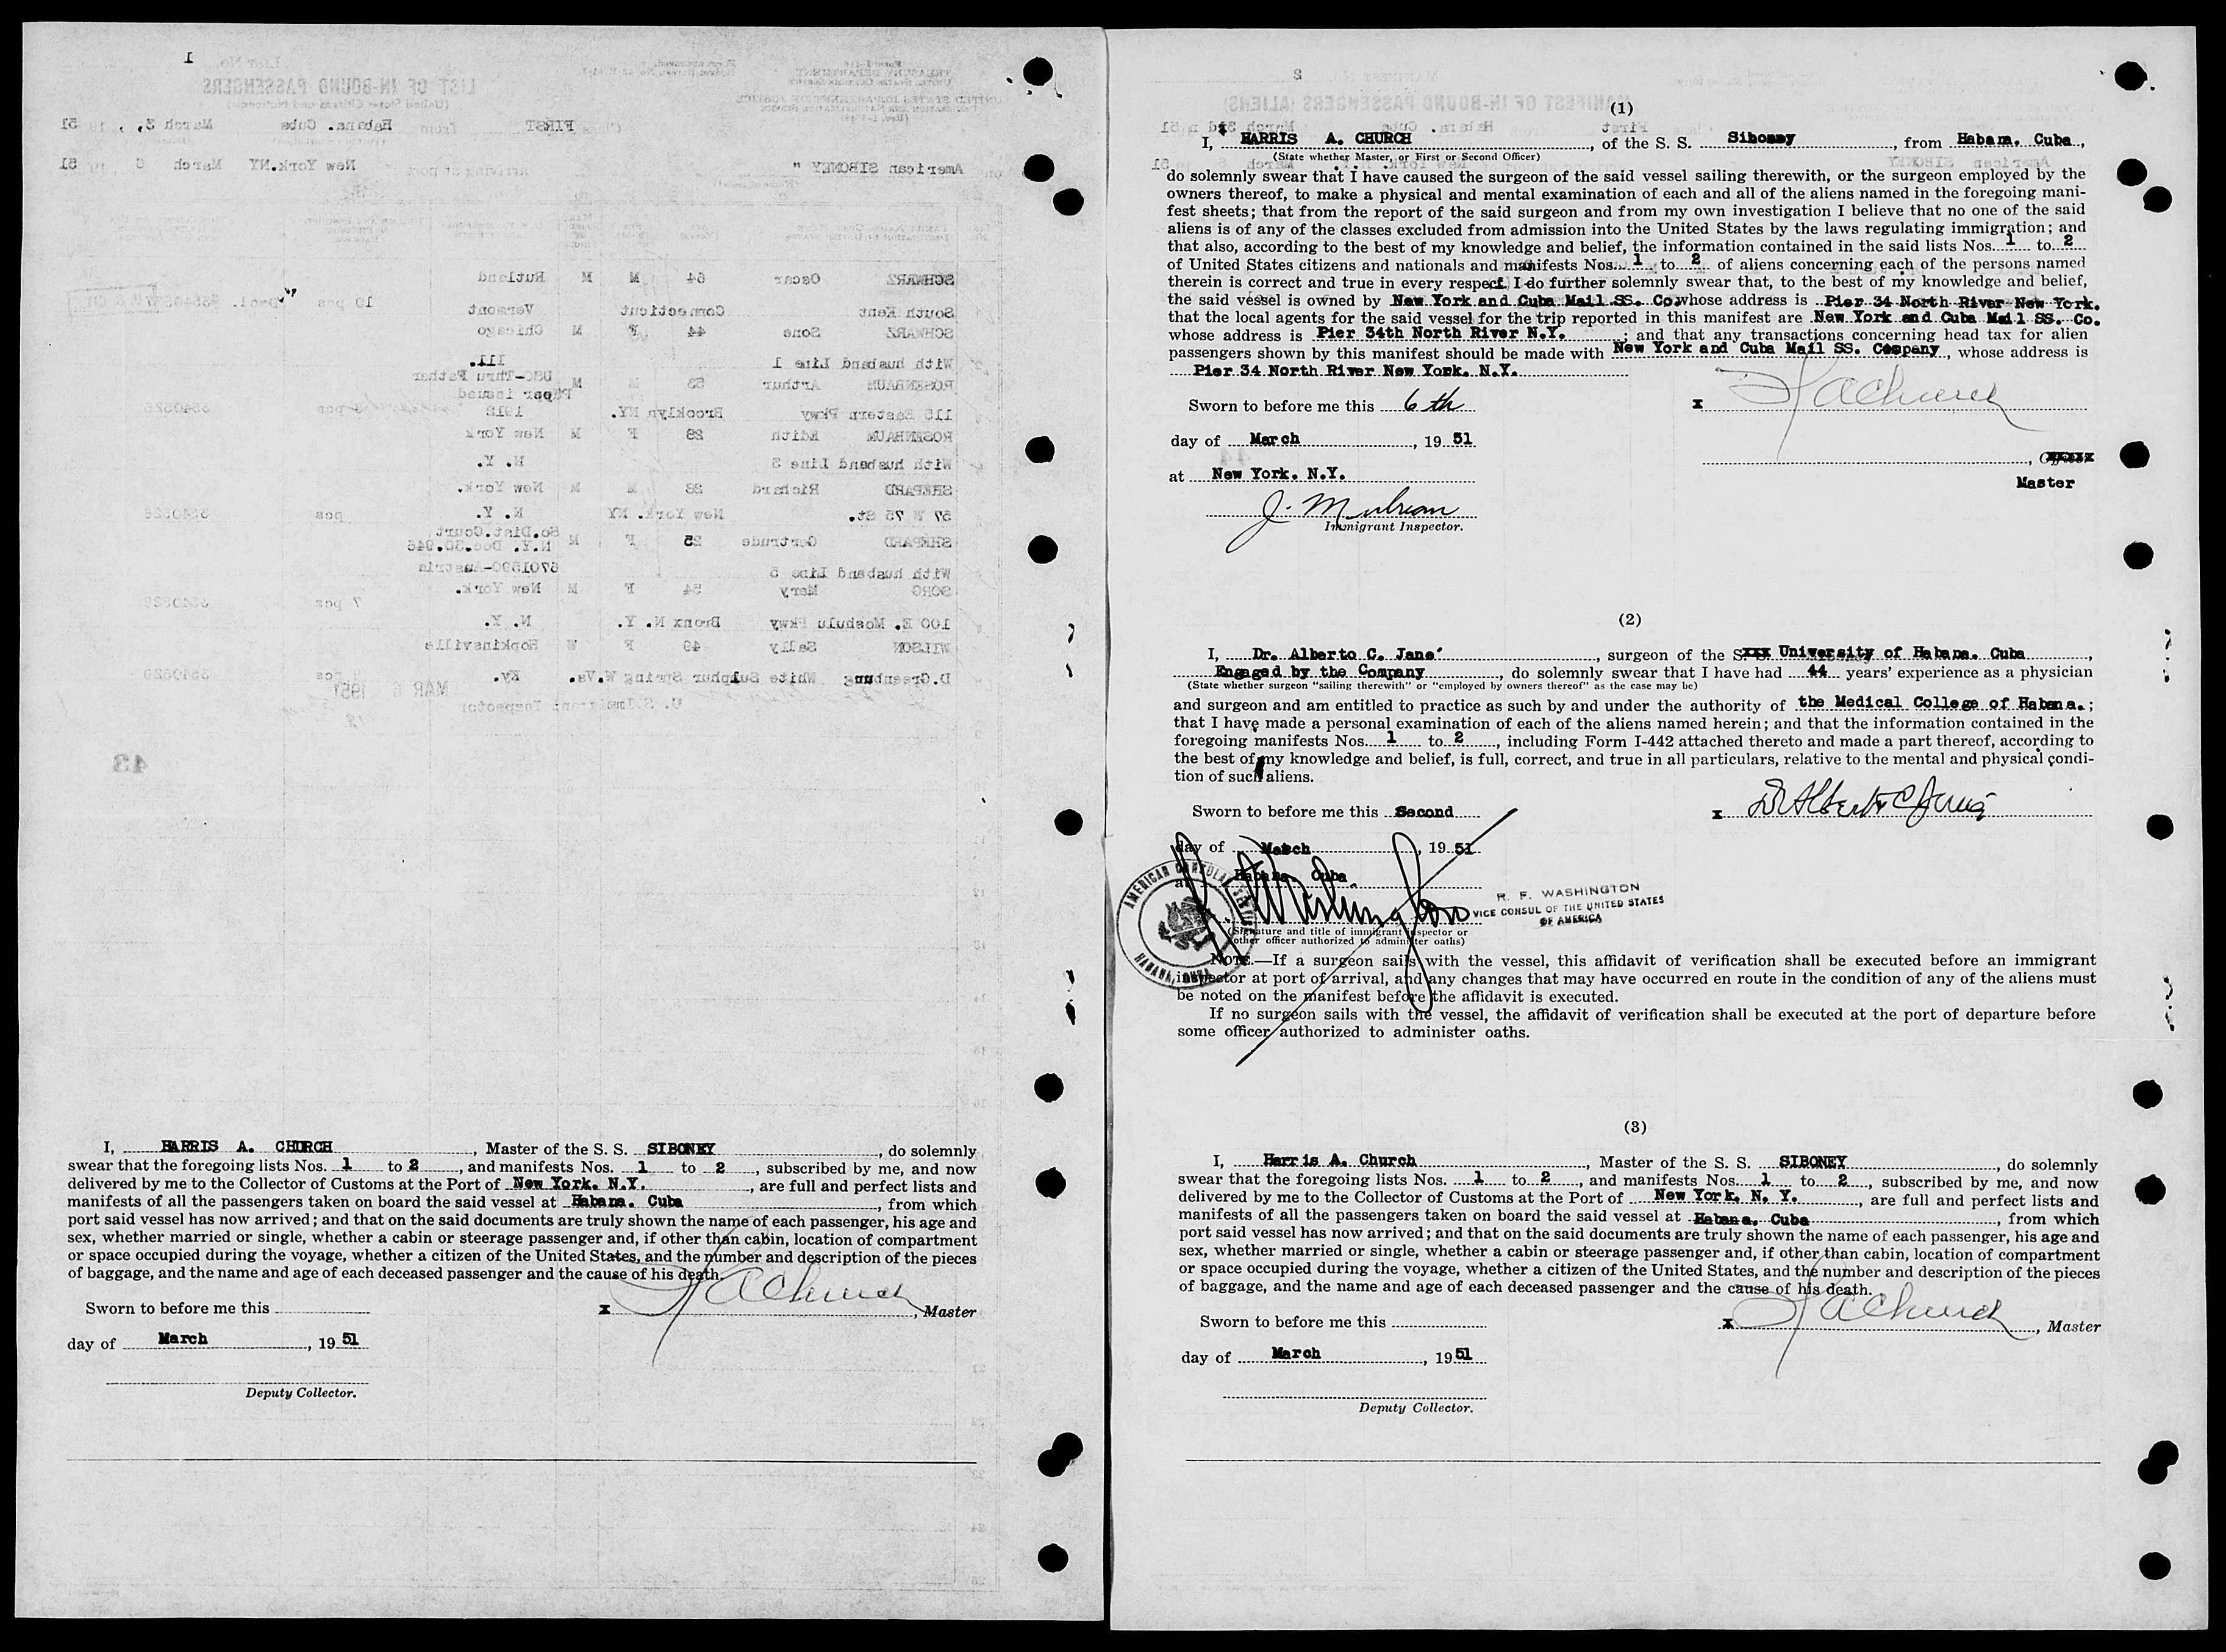 1
LIST OF IN-BOUND PASSENGERS
(United States Citizens and Nationals)
TREASURY DEPARTMENT
UNITED STATES DEPARTMENT OF JUSTICE
Class FIRST from Habana. Cuba March 3, , 19 51
on American SIBONEY " arriving at port of New York.NY March 6 19 51
SCHWARZ Oscar 64 M M Rutland
South Kent Connecticut Vermont 19 pcs
SCHWARZ Sone 44 F M Chicago
With husband Line 1 Ill.
ROSENBAUM Arthur 53 M M USC-Thru Father
Paper issued
115 Eastern Pkwy Brooklyn NY. 1912 pcs
ROSENBAUM Edith 29 F M New York
With husband Line 3 N. Y.
SHEPARD Richard 28 M M New York.
57 W 75 St. New York. NY N. Y. pcs
SHEPARD Gertrude 25 F M So.Dist.Court
N.Y. Dec.30.946
With husband Line 5 6701590-Austria
SORG Mary 54 F M New York.
100 E. Mosholu Pkwy Bronx N. Y. N. Y. 7 pcs
WILSON Sally 49 F W Hopkinsville
D.Greenbung White Sulphur Spring W.Va. Ky. pcs
MAR 6 1951
U. S. Immigrant Inspector
43
I, HARRIS A. CHURCH, Master of the S. S. SIBONEY, do solemnly
swear that the foregoing lists Nos. 1 to 2, and manifests Nos. 1 to 2, subscribed by me, and now
delivered by me to the Collector of Customs at the Port of New York. N.Y., are full and perfect lists and
manifests of all the passengers taken on board the said vessel at Habana. Cuba, from which
port said vessel has now arrived; and that on the said documents are truly shown the name of each passenger, his age and
sex, whether married or single, whether a cabin or steerage passenger and, if other than cabin, location of compartment
or space occupied during the voyage, whether a citizen of the United States, and the number and description of the pieces
of baggage, and the name and age of each deceased passenger and the cause of his death.
Sworn to before me this
x HAChurch, Master
day of March, 19 51
Deputy Collector.
2
MANIFEST OF IN-BOUND PASSENGERS (ALIENS)
(1)
I, HARRIS A. CHURCH, of the S. S. Siboney, from Habana. Cuba,
(State whether Master, or First or Second Officer)
do solemnly swear that I have caused the surgeon of the said vessel sailing therewith, or the surgeon employed by the
owners thereof, to make a physical and mental examination of each and all of the aliens named in the foregoing mani-
fest sheets; that from the report of the said surgeon and from my own investigation I believe that no one of the said
aliens is of any of the classes excluded from admission into the United States by the laws regulating immigration; and
that also, according to the best of my knowledge and belief, the information contained in the said lists Nos. 1 to 2
of United States citizens and nationals and manifests Nos. 1 to 2 of aliens concerning each of the persons named
therein is correct and true in every respect. I do further solemnly swear that, to the best of my knowledge and belief,
the said vessel is owned by New York and Cuba Mail SS. Co. whose address is Pier 34 North River New York.
that the local agents for the said vessel for the trip reported in this manifest are New York and Cuba Mail SS. Co.
whose address is Pier 34th North River N.Y.; and that any transactions concerning head tax for alien
passengers shown by this manifest should be made with New York and Cuba Mail SS. Company, whose address is
Pier 34 North River New York. N.Y.
Sworn to before me this 6 th
x HAChurch
day of March, 19 51
, Officer
at New York. N.Y.
Master
Immigrant Inspector.
(2)
I, Dr. Alberto C. Jane', surgeon of the S. xxx University of Habana. Cuba,
Engaged by the Company, do solemnly swear that I have had 44 years' experience as a physician
(State whether surgeon "sailing therewith" or "employed by owners thereof" as the case may be)
and surgeon and am entitled to practice as such by and under the authority of the Medical College of Habana.;
that I have made a personal examination of each of the aliens named herein; and that the information contained in the
foregoing manifests Nos. 1 to 2, including Form I-442 attached thereto and made a part thereof, according to
the best of my knowledge and belief, is full, correct, and true in all particulars, relative to the mental and physical condi-
tion of such aliens.
Sworn to before me this Second
x Dr Alberto C Jané
day of March, 19 51
at Habana. Cuba.
R. F. WASHINGTON
VICE CONSUL OF THE UNITED STATES
OF AMERICA
AMERICAN CONSULAR SERVICE
HABANA, CUBA
(Signature and title of immigrant inspector or
other officer authorized to administer oaths)
NOTE.—If a surgeon sails with the vessel, this affidavit of verification shall be executed before an immigrant
inspector at port of arrival, and any changes that may have occurred en route in the condition of any of the aliens must
be noted on the manifest before the affidavit is executed.
If no surgeon sails with the vessel, the affidavit of verification shall be executed at the port of departure before
some officer authorized to administer oaths.
(3)
I, Harris A. Church, Master of the S. S. SIBONEY, do solemnly
swear that the foregoing lists Nos. 1 to 2, and manifests Nos. 1 to 2, subscribed by me, and now
delivered by me to the Collector of Customs at the Port of New York. N. Y., are full and perfect lists and
manifests of all the passengers taken on board the said vessel at Habana. Cuba, from which
port said vessel has now arrived; and that on the said documents are truly shown the name of each passenger, his age and
sex, whether married or single, whether a cabin or steerage passenger and, if other than cabin, location of compartment
or space occupied during the voyage, whether a citizen of the United States, and the number and description of the pieces
of baggage, and the name and age of each deceased passenger and the cause of his death.
Sworn to before me this
x HAChurch, Master
day of March, 19 51
Deputy Collector.